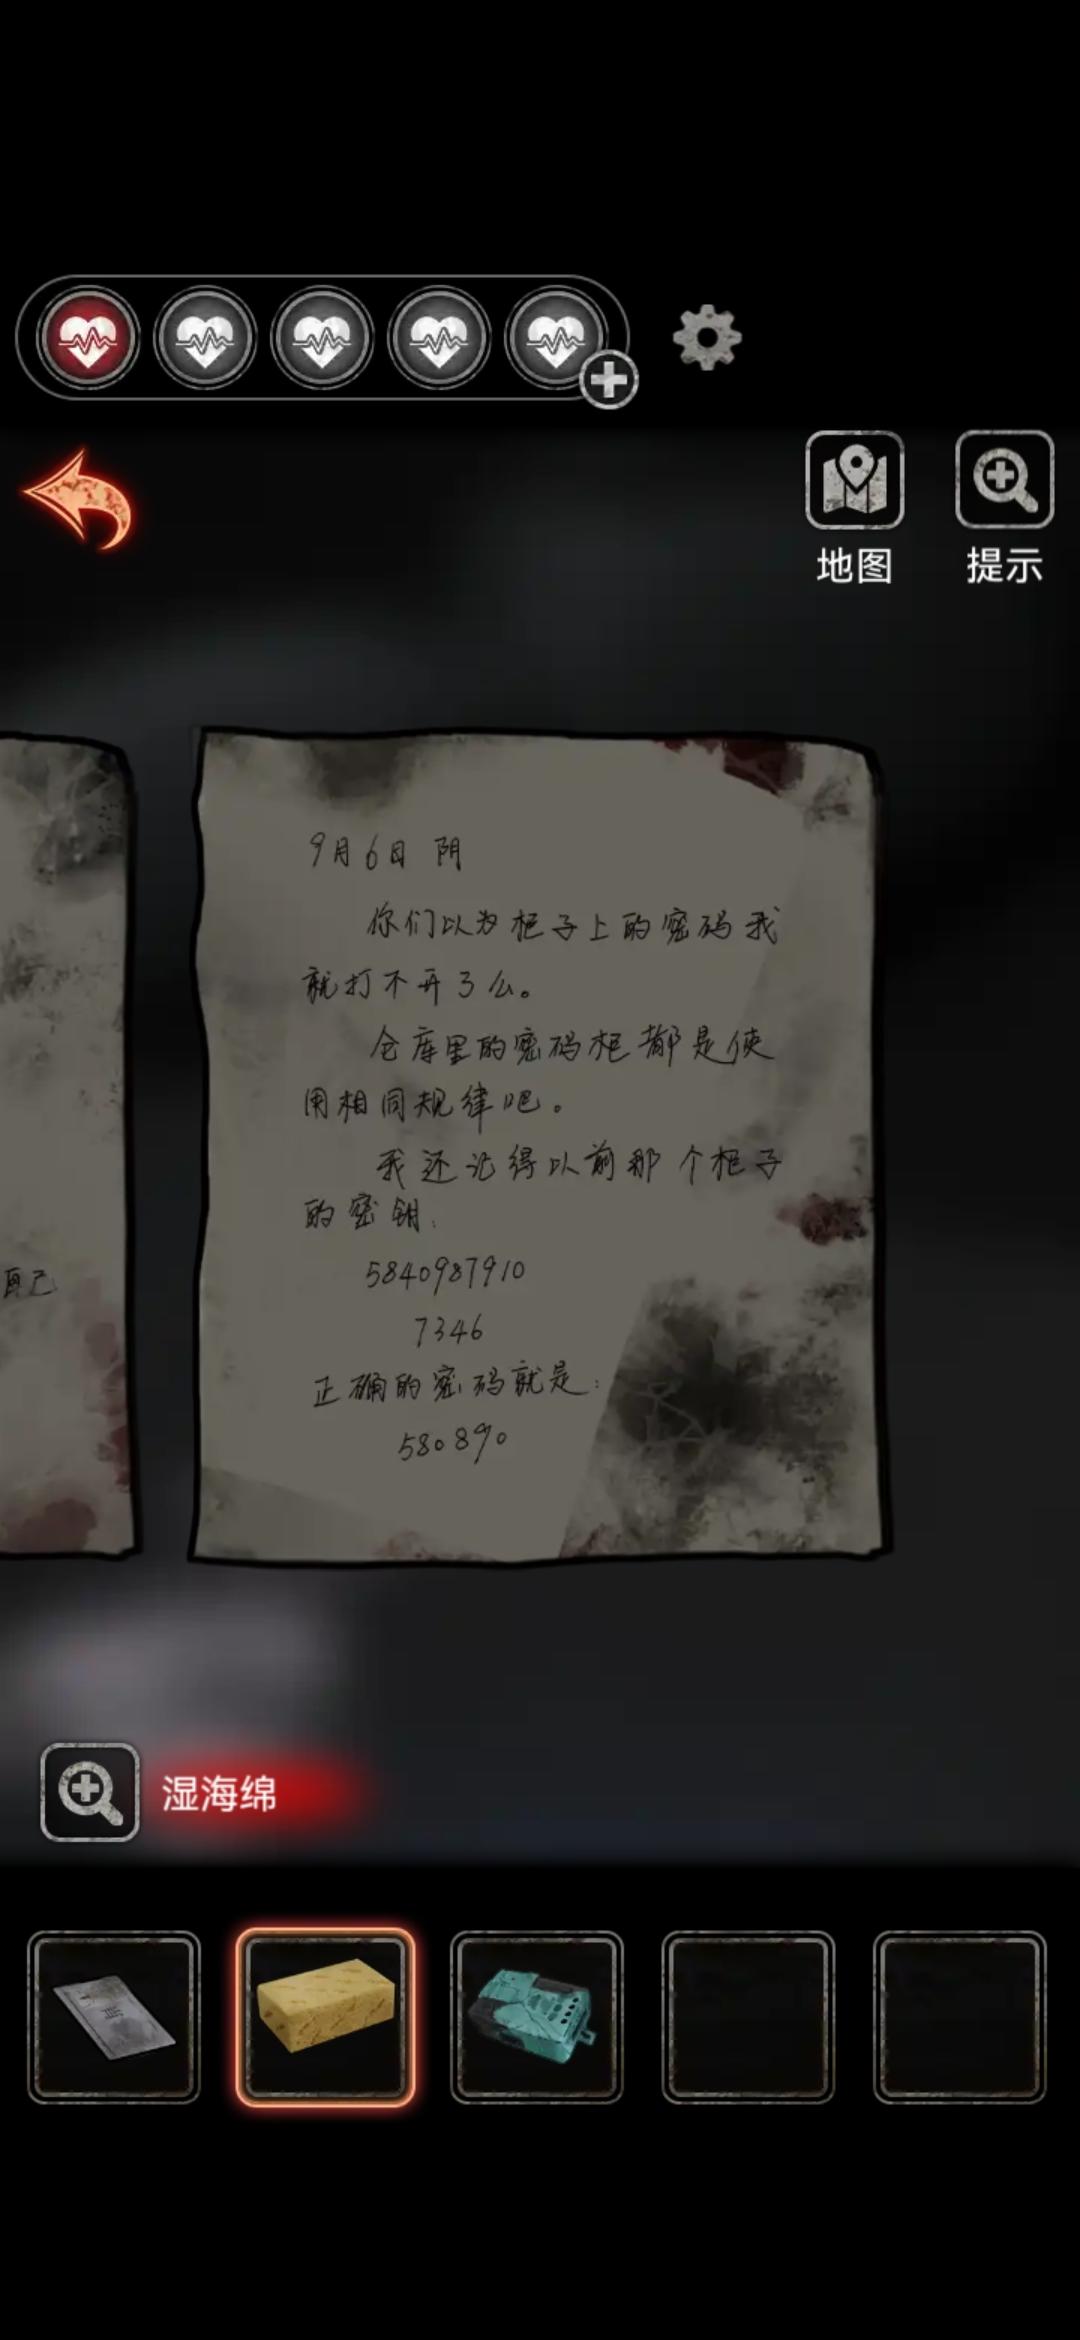 地图
提示
9月6日 阴
你们以为柜子上的密码我
就打不开了么。
仓库里的密码柜都是使
用相同规律吧。
我还记得以前那个柜子
的密钥:
5840987910
7346
正确的密码就是:
580890
自己
湿海绵